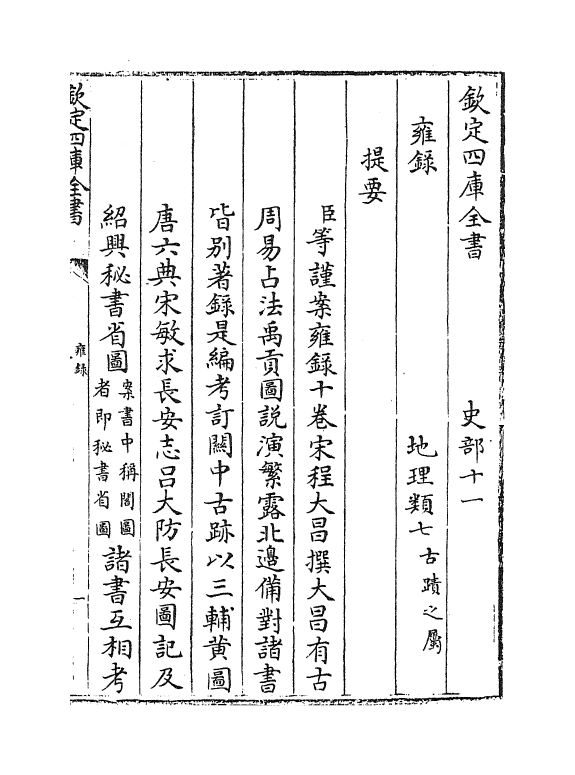 欽定四庫全書　史部十一
雍録　地理類七古蹟之屬
提要
臣等謹案雍録十卷宋程大昌撰大昌有古
周易占法禹貢圖說演繁露北邊備對諸書
皆别著録是編考訂關中古跡以三輔黄圖
唐六典宋敏求長安志吕大防長安圖記及
紹興秘書省圖案書中稱閣圖者即秘書省圖諸書互相考
欽定四庫全書
雍録
一